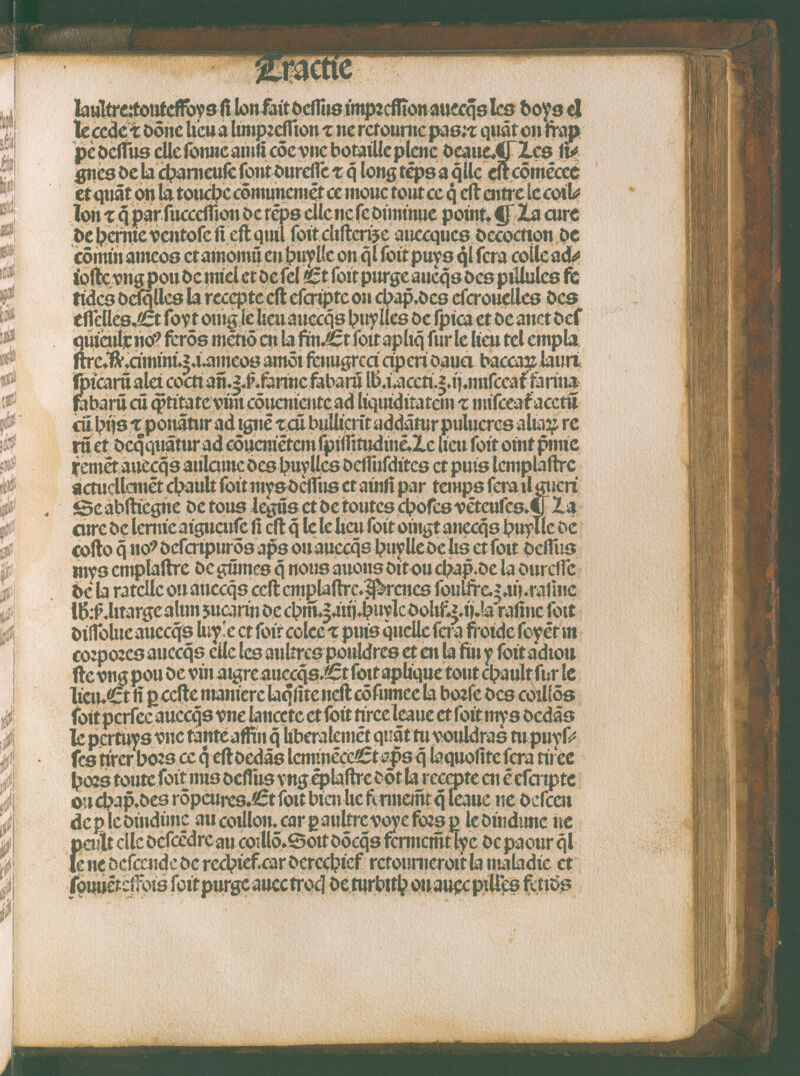 Tractie
laultre:touteffoys ſi lon fait deſſus impꝛeſſion auecq̄s les doys el
le cede ⁊ dōne lieu a limpꝛeſſion ⁊ ne retourne pas:⁊ quāt on frap
pe deſſus elle ſonne ainſi cōe vne botaille plene deaue.¶ Les ſi⸗
gnes de la charneuſe ſont dureſſe ⁊ q̄ long tēps a q̄lle eſt cōmēcee
et quāt on la touche cōmunemēt ce mouc tout ce q̄ eſt entre le coil⸗
lon ⁊ q̄ par ſucceſſion de tēps elle ne ſe diminue point. ¶ La cure
de hernie ventoſe ſi eſt quil ſoit cliſterize auecques decoction de
cōmin ameos et amomū en huylle on q̄l ſoit puys q̄l ſera colle ad⸗
ioſte vng pou de miel et de ſel Et ſoit purge aueq̄s des pillules fe
tides deſq̄lles la recepte eſt eſcripte ou chap̄.des eſcrouelles des
eſſelles.Et ſoyt oing le lieu auecq̄s huylles de ſpica et de anet deſ
quieulx noꝰ ferōs mētiō en la fin.Et ſoit apliq̄ ſur le lieu tel empla
ſtre.℞.cimini.ʒ.i.ameos amōi fenugreci ciperi dauci baccaꝝ lauri
ſpicarū alei cocti an̄.ʒ.ß.farine fabarū lb.i.aceti.ʒ.ij.miſceat̄ farina
fabarū cū q̄ntitate vini cōueniente ad liquiditatem ⁊ miſceat̄ acetū
cū hijs ⁊ ponātur ad ignē ⁊ cū bullierit addātur pulueres aliaꝝ re
rū et deq̄quātur ad cōueniētem ſpiſſitudinē.Le lieu ſoit oint p̄mie
remēt auecq̄s aulcune des huylles deſſuſdites et puis lemplaſtre
actuellemēt chault ſoit mys deſſus et ainſi par temps ſera il gueri
Se abſtiegne de tous legūs et de toutes choſes vēteuſes.¶ La
cure de lernie aigueuſe ſi eſt q̄ le le lieu ſoit oingt anecq̄s huylle de
coſto q̄ noꝰ deſcripurōs ap̄s ou auecq̄s huylle de lis et ſoit deſſus
mys emplaſtre de gūmes q̄ nous auons dit ou chap̄.de la dureſſe
de la ratelle ou auecq̄s ceſt emplaſtre.Prenes ſoulfre.ʒ.iij.raſine
lb:ß.litarge alun zucarin de chm̄.ʒ.iiij.huyle doliſ.ʒ.ij.la raſine ſoit
diſſolue auecq̄s luyle et ſoit colee ⁊ puis quelle ſera froide ſoyēt in
coꝛpoꝛes auecq̄s elle les aultres pouldres et en la fin y ſoit adiou
ſte vng pou de vin aigre auecq̄s.Et ſoit aplique tout chault ſur le
lieu.Et ſi ꝑ ceſte maniere laq̄ſite neſt cōſumee la boꝛſe des coillōs
ſoit perſee auecq̄s vne lancete et ſoit tiree leaue et ſoit mys dedās
le pertuys vne tante affin q̄ liberalemēt quāt tu vouldras tu puyſ⸗
ſes tirer hoꝛs ce q̄ eſt dedās leminēce Et ap̄s q̄ laquoſite ſera tiree
hoꝛs toute ſoit mis deſſus vng ēplaſtre dōt la recepte en ē eſcripte
ou chap̄.des rōpeures.Et ſoit bien lie fermem̄t q̄ leaue ne deſcen
de ꝑ le dindime au coillon. car ꝑ aultre voye foꝛs ꝑ le dindime ne
peult elle deſcēdre au coillō.Soit dōcq̄s fermem̄t lye de paour q̄l
le ne deſcende de rechief.car derechief retourneroit la maladie et
ſouuēteſfois ſoit purge auec trocſ de turbith ou auec pilles fetids